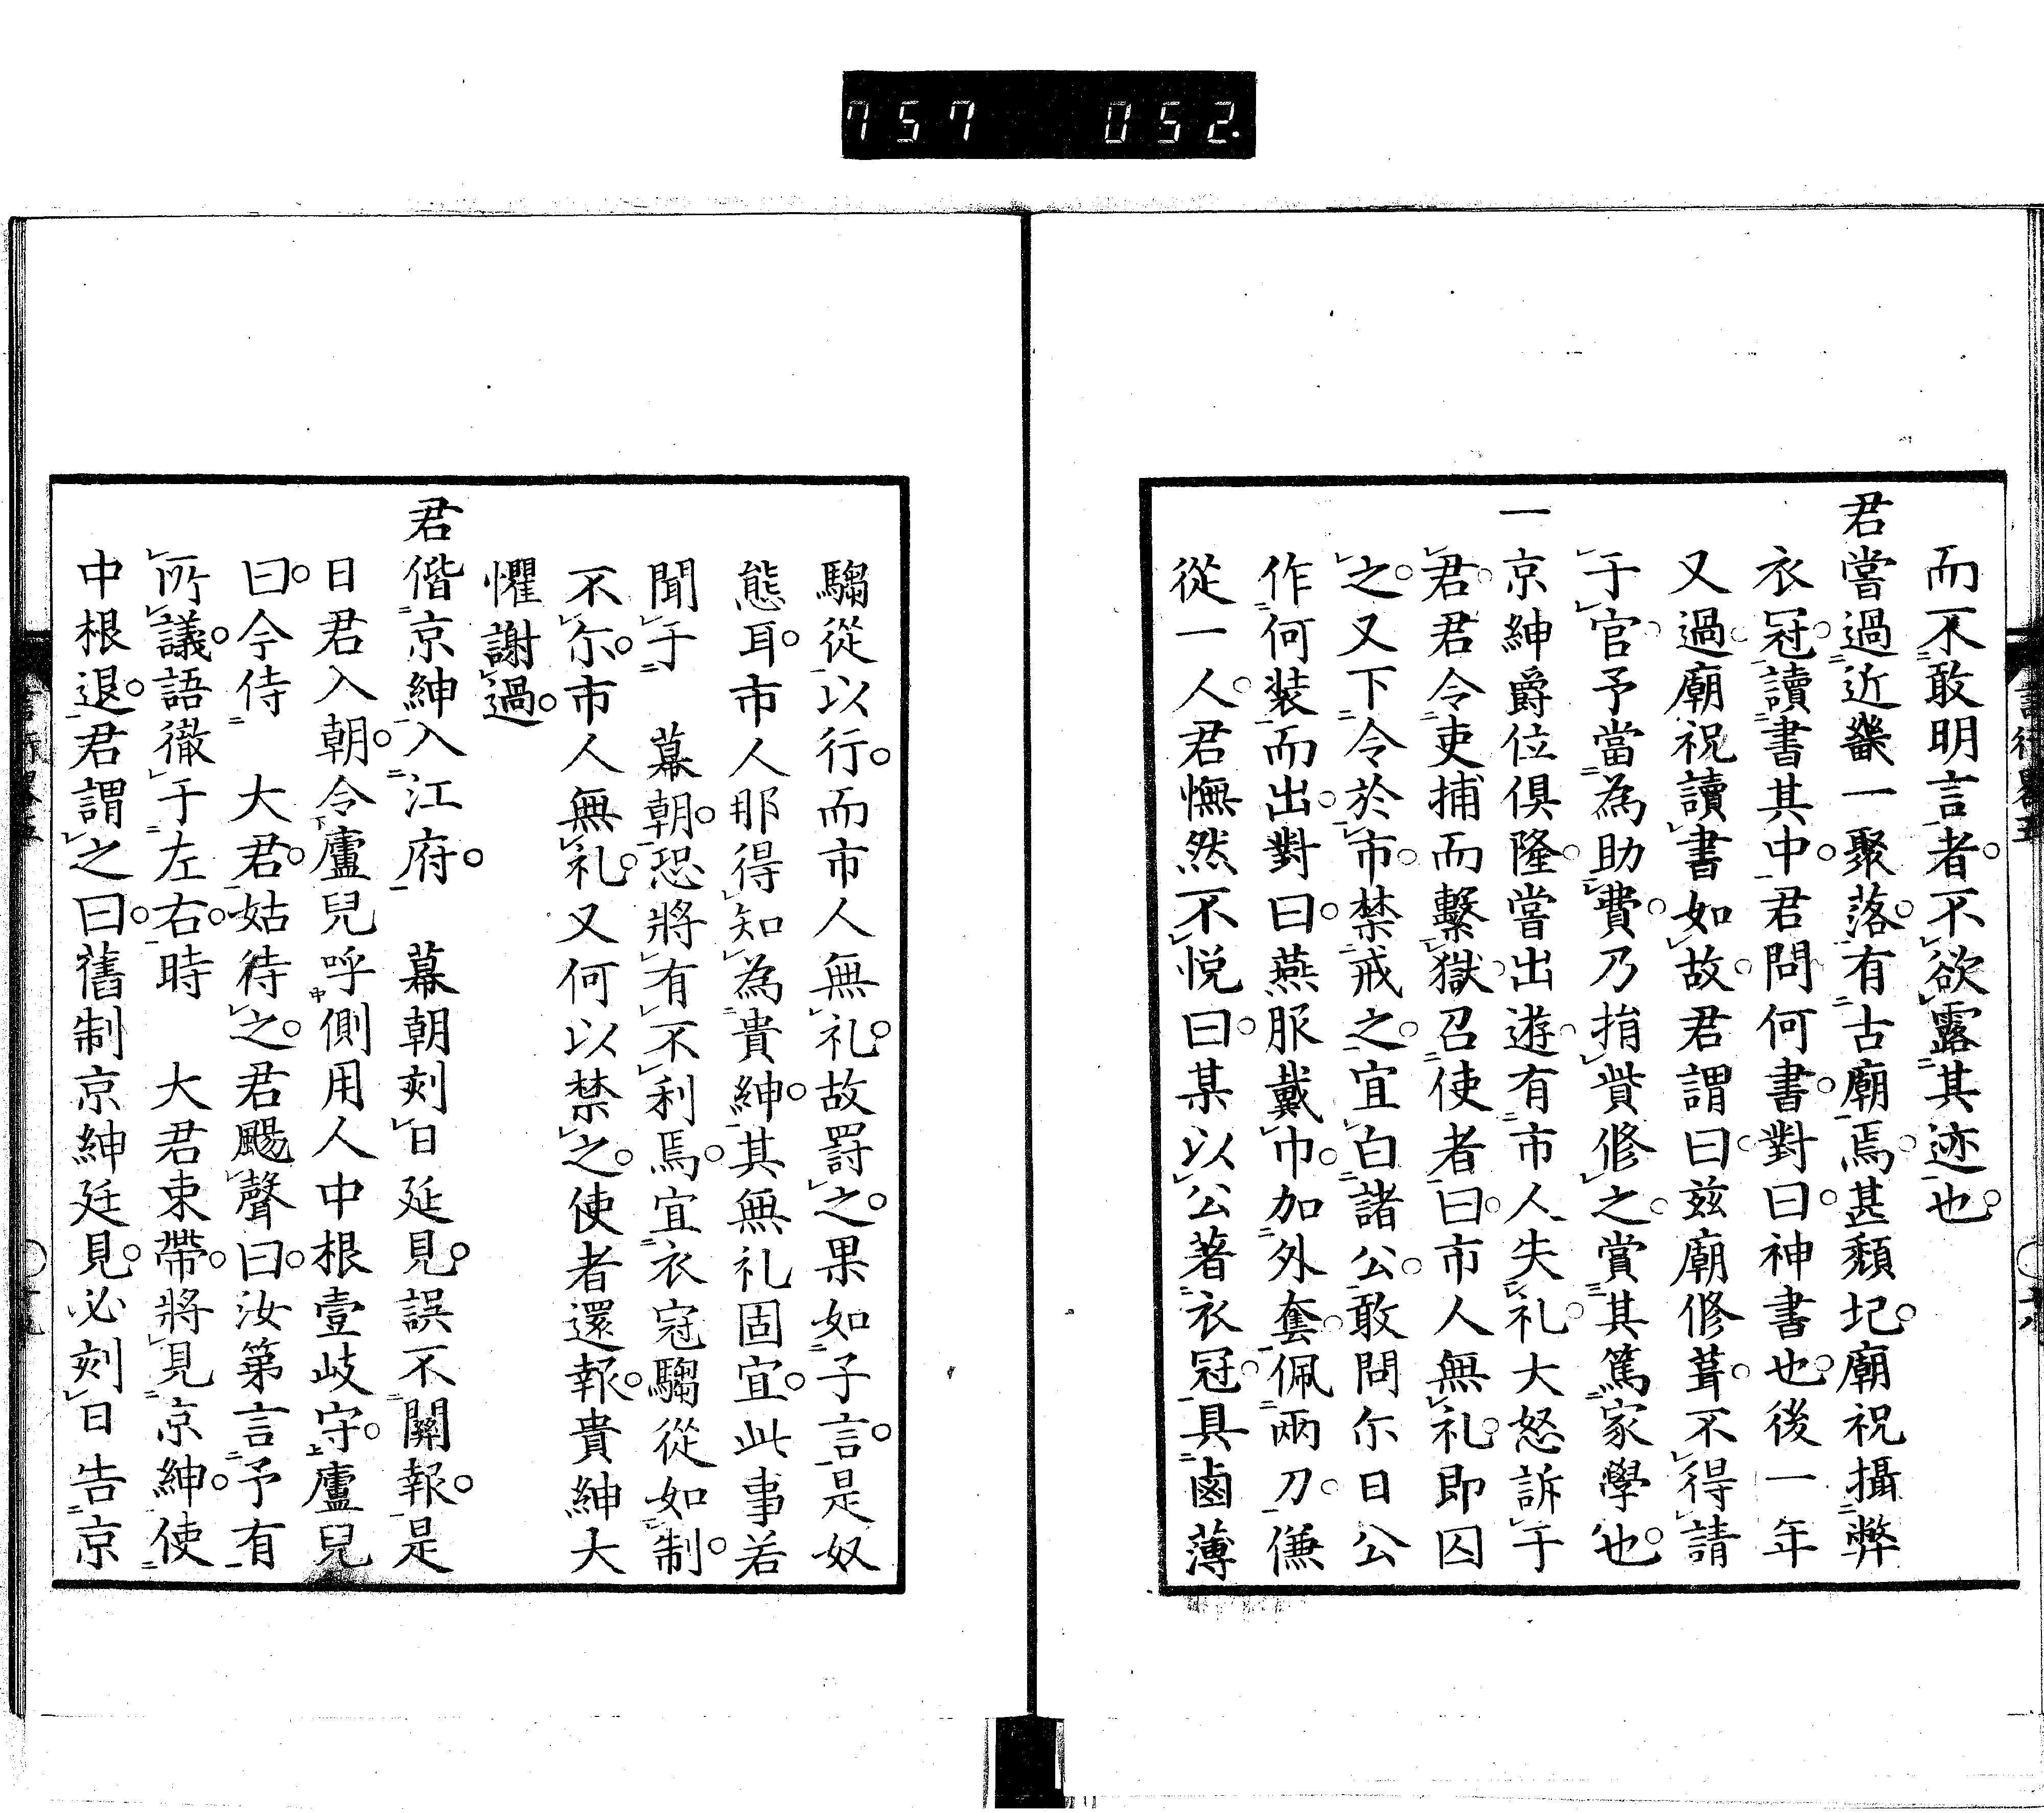 757 052.
而不敢明言者不欲露其迹也
君嘗過近畿一聚落有古廟焉甚頽圮廟祝攝弊
衣冠讀書其中君問何書對曰神書也後一年
又過廟祝讀書如故君謂曰茲廟修葺不得請
于官予當為助費乃捐貲修之賞其篤家學也
一京紳爵位俱隆嘗出遊有市人失礼大怒訴于
君君令吏捕而繫獄召使者曰市人無礼即囚
之又下令於市禁戒之宜白諸公敢問尓日公
作何装而出對曰燕服戴巾加外套佩兩刀傔
從一人君憮然不悦曰某以公著衣冠具鹵薄
騶從以行而市人無礼故罰之果如子言是奴
態耳市人那得知為貴紳其無礼固宜此事若
聞于 幕朝恐將有不利焉宜衣冠騶從如制
不尓市人無礼又何以禁之使者還報貴紳大
懼謝過
君偕京紳入江府 幕朝刻日延見誤不關報是
日君入朝令廬兒呼側用人中根壹岐守廬兒
曰今侍 大君姑待之君颺聲曰汝第言予有
所議語徹于左右時 大君束帶將見京紳使
中根退君謂之曰舊制京紳廷見必刻日告京